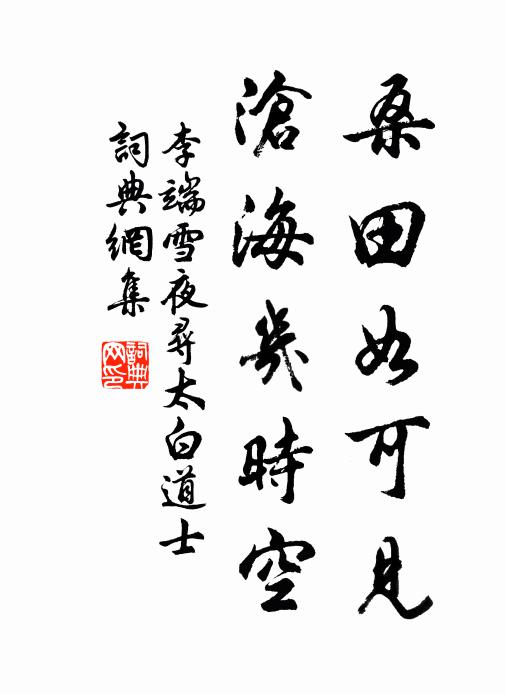 桑田如可見
滄海幾時空
李端雪夜尋太白道士
詞典網集
詞典
网印